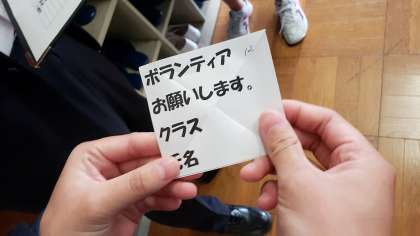 ボランティア
お願いします。
クラス
氏名